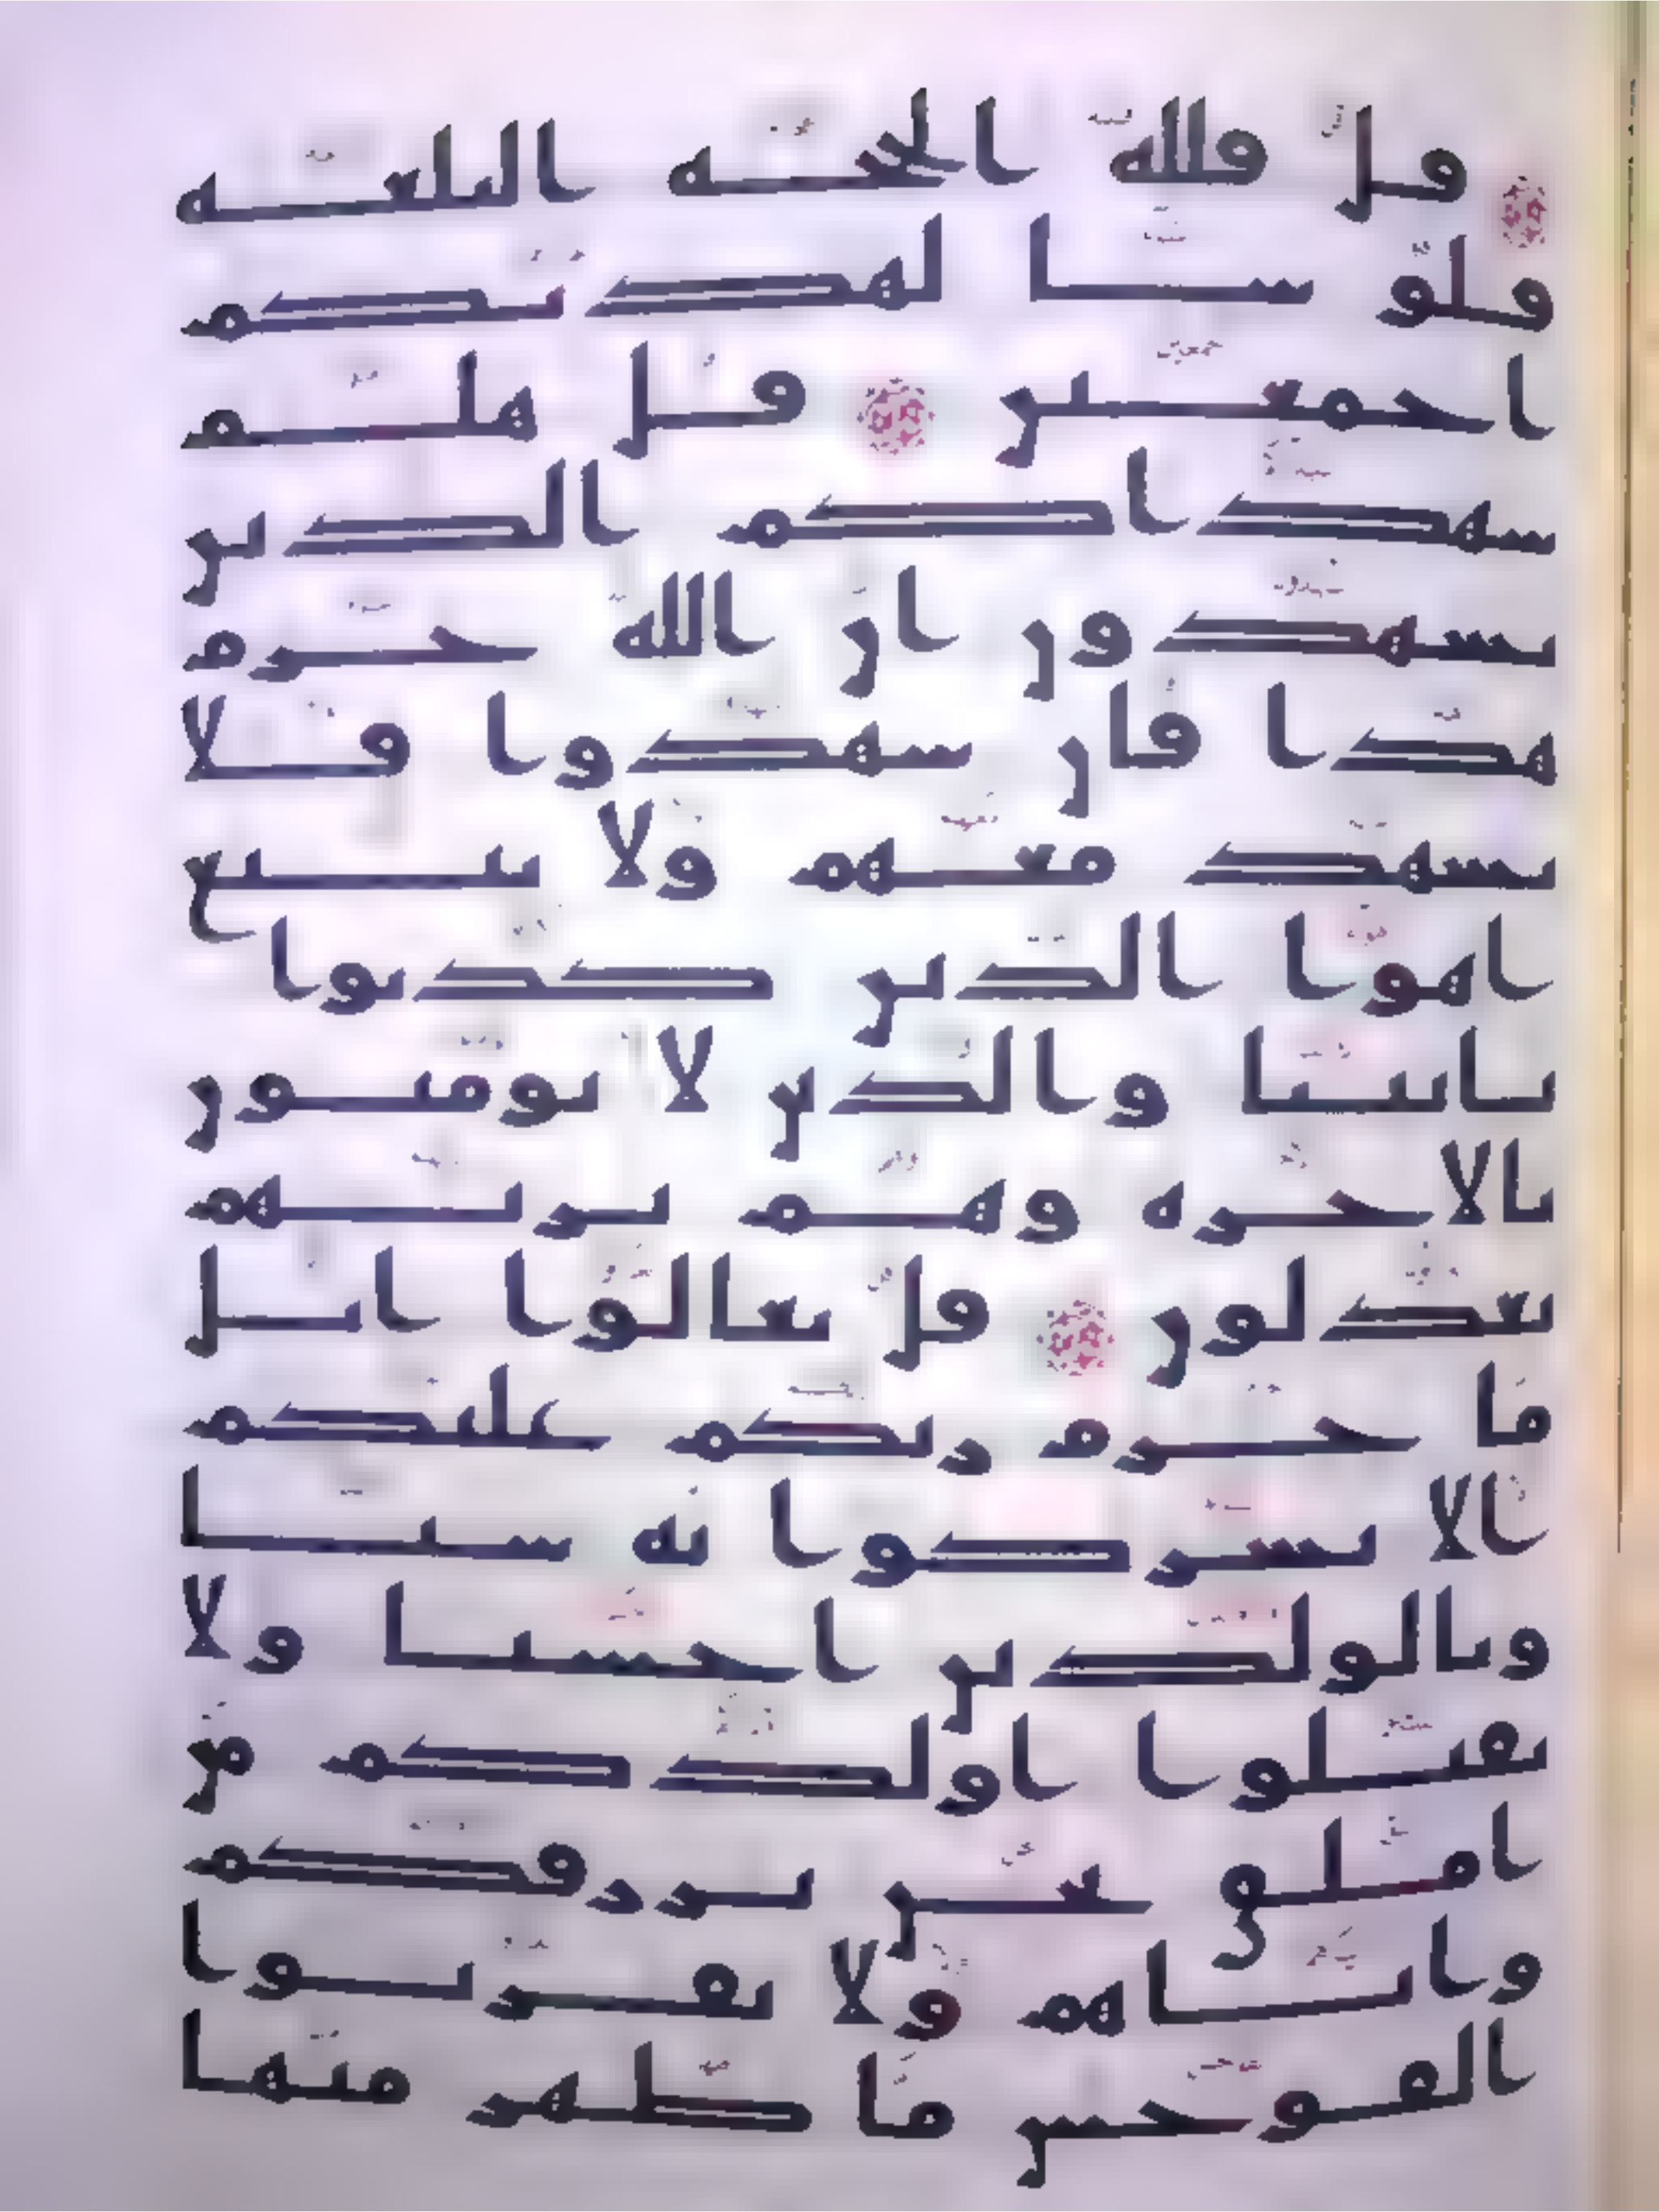 قل فلله الحجة البلغة
فلو شا لهديكم
اجمعين قل هلم
شهداكم الذين
يشهدون ان الله حرم
هذا فان شهدوا فلا
تشهد معهم ولا تتبع
اهوا الذين كذبوا
بايتنا والذين لا يومنون
بالاخرة وهم بربهم
يعدلون قل تعالوا اتل
ما حرم ربكم عليكم
الا تشركوا به شيا
وبالولدين احسنا ولا
تقتلوا اولدكم من
املق نحن نرزقكم
واياهم ولا تقربوا
الفوحش ما ظهر منها